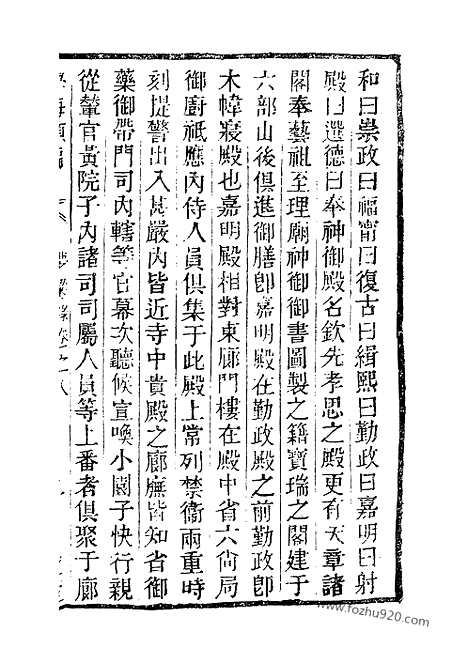 和曰崇政曰福甯曰復古曰緝熙曰勤政曰嘉明曰射
殿曰選德曰奉神御殿名欽先孝思之殿更有天章諸
閣奉藝祖至理廟神御御書圖製之籍寶瑞之閣建于
六部山後俱進御膳卽嘉明殿在勤政殿之前勤政卽
木幃寢殿也嘉明殿相對東廊門樓在殿中省六尙局
御廚祇應內侍人員俱集于此殿上常列禁衞兩重時
刻提警出入甚嚴內皆近寺中貴殿之廊廡皆知省御
藥御帶門司內轄等官幕次聽候宣喚小園子快行親
從輦官黃院子內諸司司屬人員等上番者俱聚于廊
www.fozhu920.com